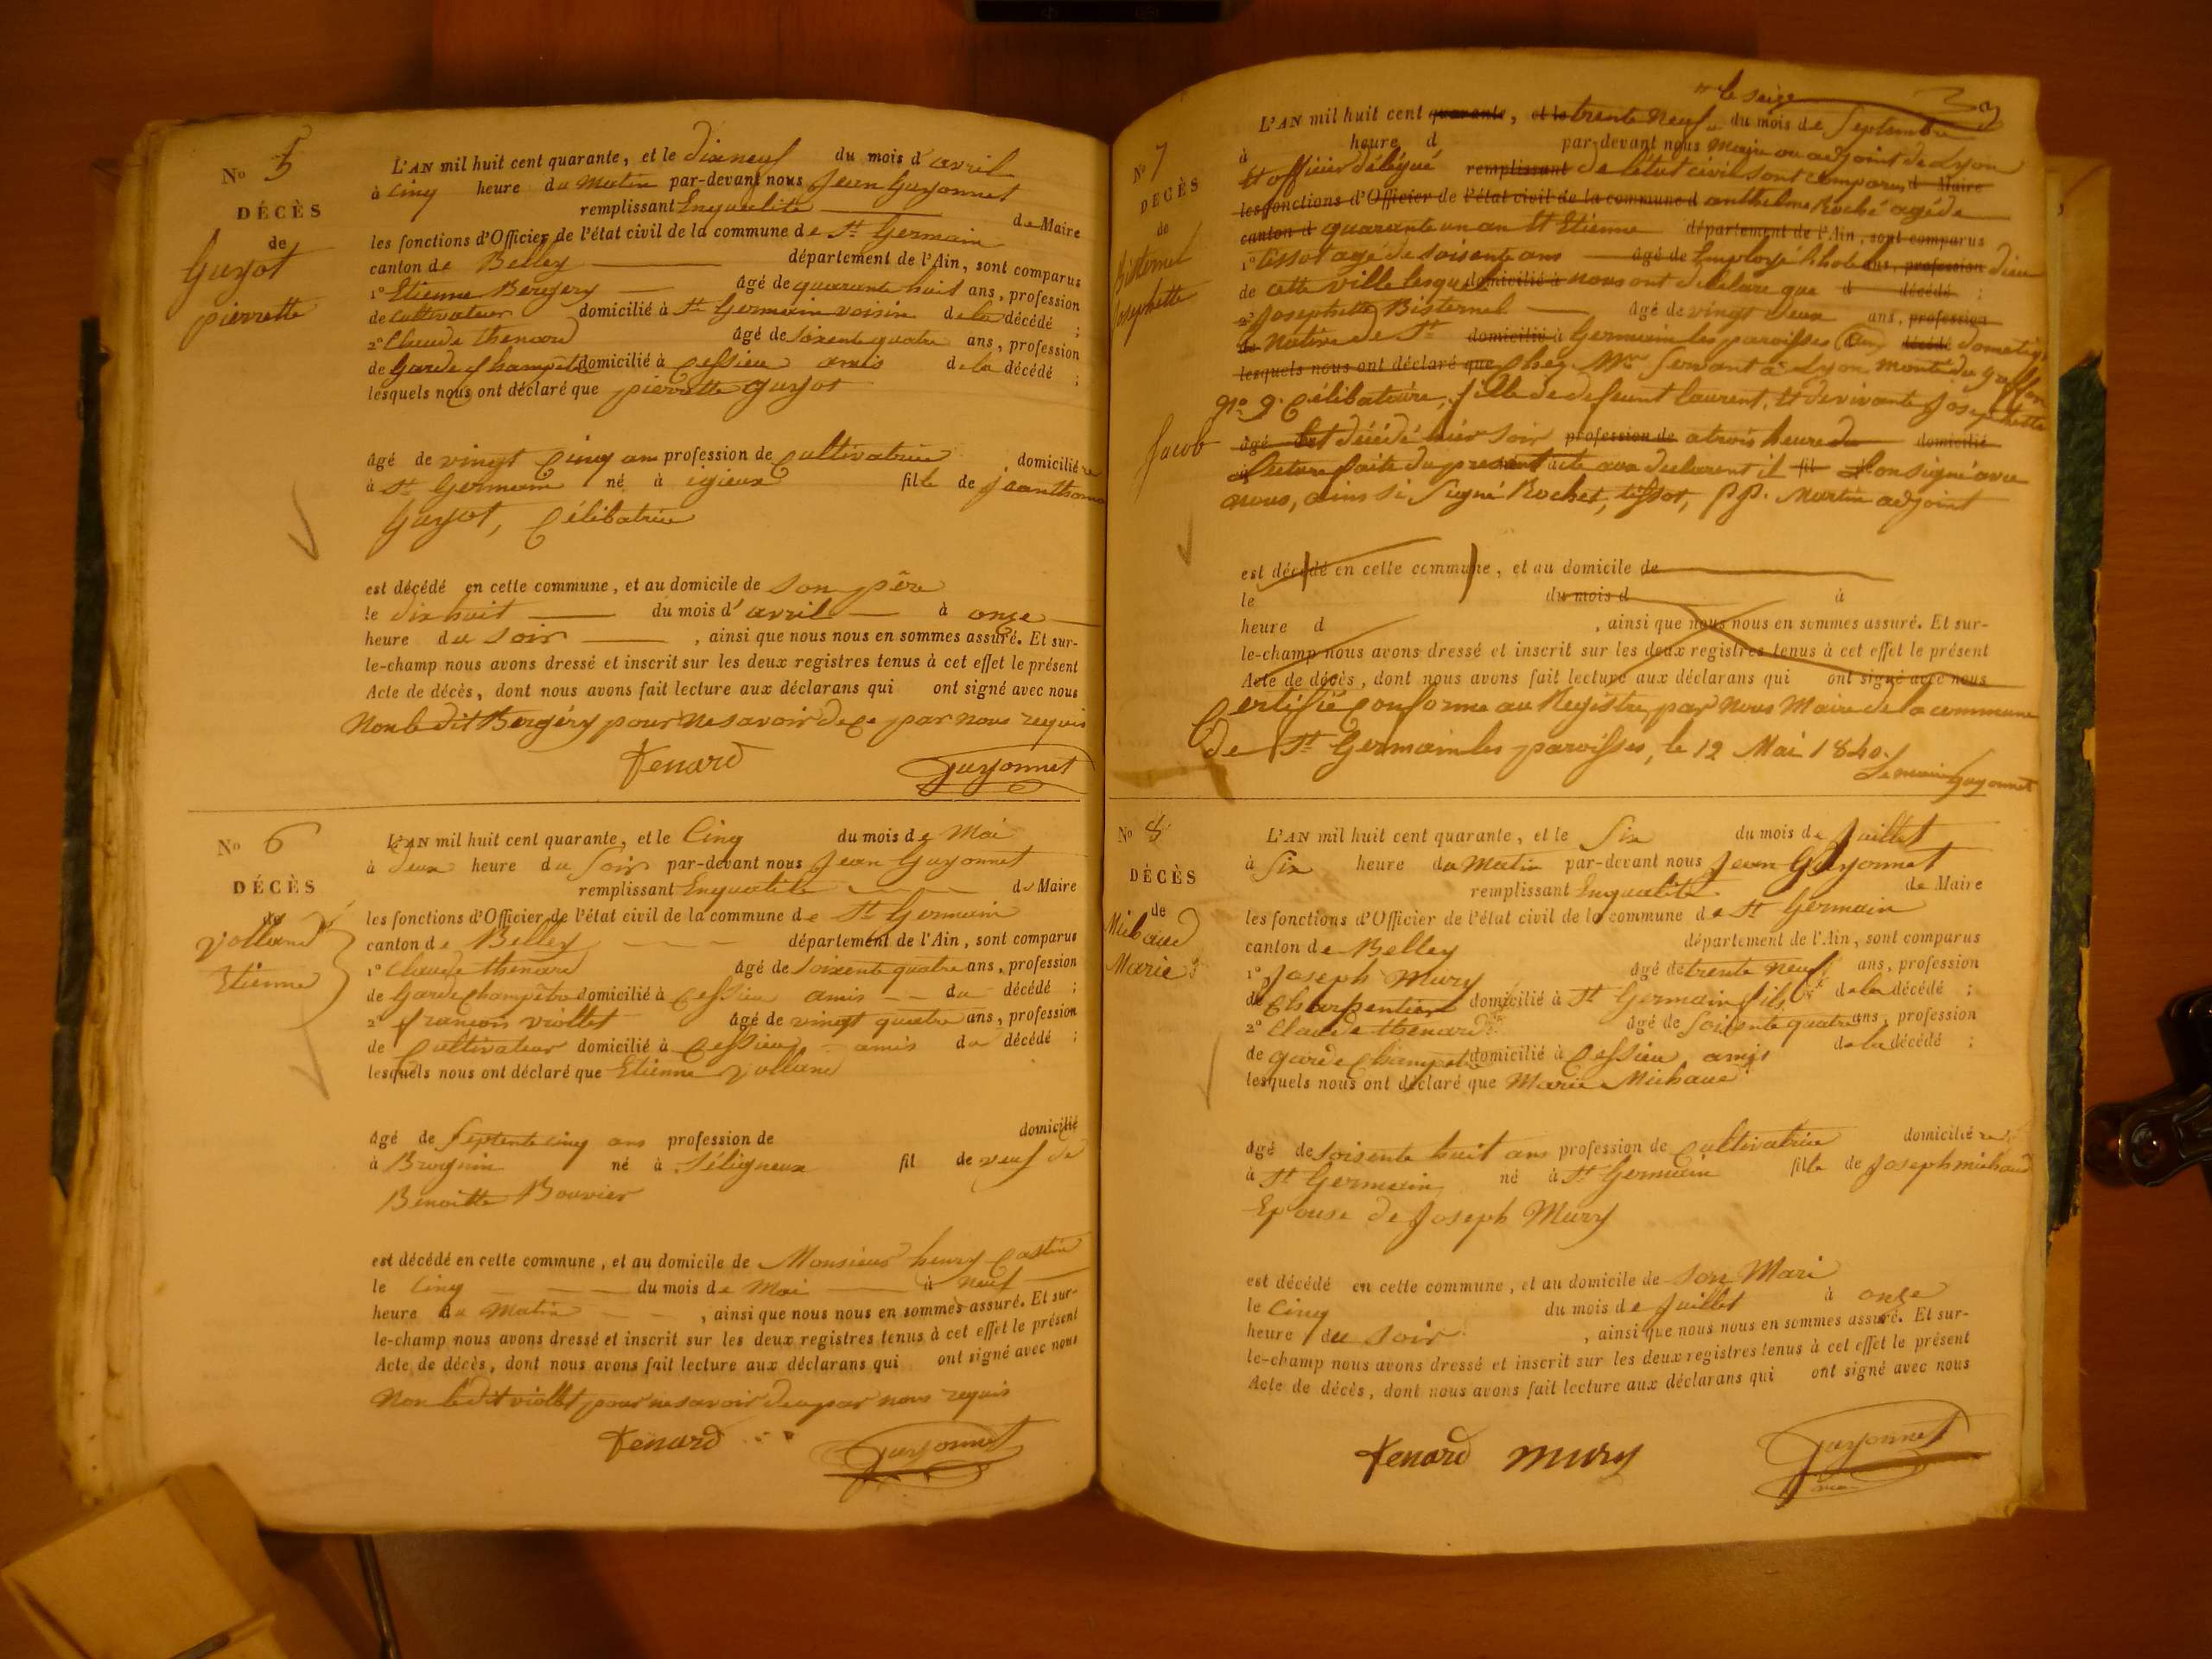 No 5
DÉCÈS
de
Guyot
pierrette
L'AN mil huit cent quarante, et le dixneuf du mois d'avril
à cinq heure du Matin par-devant nous Jean Guyonnet
remplissant Enqualité de Maire
les fonctions d'Officier de l'état civil de la commune de St Germain
canton de Belley département de l'Ain, sont comparus
1o Etienne Bergery âgé de quarante huit ans, profession
de Cultivateur domicilié à St Germain voisin de la décédé ;
2o Claude thenard âgé de soixente quatre ans, profession
de Garde Champêtre domicilié à Cessieu amis de la décédé ;
lesquels nous ont déclaré que pierrette guyot
âgé de vingt Cinq ans profession de Cultivatrice domicilié
à St Germain né à igieux fille de
Guyot, Célibatrice
est décédé en cette commune, et au domicile de son père
le dix huit du mois d'avril à onze
heure du soir , ainsi que nous nous en sommes assuré. Et sur-
le-champ nous avons dressé et inscrit sur les deux registres tenus à cet effet le présent
Acte de décès, dont nous avons fait lecture aux déclarans qui ont signé avec nous
Non le dit Bergéry pour ne savoir de ce par nous requis
Fenard Guyonnet
No 6
DÉCÈS
de
Volland
Etienne
L'AN mil huit cent quarante, et le Cinq du mois de Mai
à deux heure du Soir par-devant nous Jean Guyonnet
remplissant Enqualité de Maire
les fonctions d'Officier de l'état civil de la commune de St Germain
canton de Belley département de l'Ain, sont comparus
1o Claude thenard âgé de soixente quatre ans, profession
de Garde Champêtre domicilié à Cessieu amis du décédé ;
2o françois viollet âgé de vingt quatre ans, profession
de Cultivateur domicilié à Cessieu amis du décédé ;
lesquels nous ont déclaré que Etienne Volland
âgé de Septente cinq ans profession de domicilié
à Brognin né à Séligneux fil de veuf de
Benoitte Bouvier
est décédé en cette commune, et au domicile de Monsieur henry
le Cinq du mois de Mai à neuf
heure du Matin , ainsi que nous nous en sommes assuré. Et sur-
le-champ nous avons dressé et inscrit sur les deux registres tenus à cet effet le présent
Acte de décès, dont nous avons fait lecture aux déclarans qui ont signé avec nous
Non le dit viollet pour ne savoir de ce par nous requis
Fenard Guyonnet
No 7
DÉCÈS
de
Bisternel
Josephette
le seize
L'AN mil huit cent quarante, et le trente Neuf du mois de Septembre
à heure d par-devant nous Maire ou adjoint de Lyon
Et officier délégué remplissant de l'état civil sont comparus d Maire
les fonctions d'Officier de l'état civil de la commune d anthelme Roché agé de
canton d quarante un an Et Etienne département de l'Ain, sont comparus
1o tissot agé de soisente ans âgé de Employé hotel ans, profession dieu
de cette ville lesquel domicilié à nous ont déclare que d décédé ;
2o Josephette Bisternel âgé de vingt deux ans, profession
de Native de St domicilié à Germain les paroisses (Ain) décédé
lesquels nous ont déclaré que Chez Mr Servant à Lyon
No 9. Célibataire, fille de defeunt laurent, Et de vivante Josephette
Jacob âgé Est décédé hier soir profession de a trois heure du domicilié
à lecture faite du present acte aux declarent il fil d on signé avec
nous, ainsi Signé Rochet, tissot, pp. Martin adjoint
est décédé en cette commune, et au domicile de
le du mois d à
heure d , ainsi que nous nous en sommes assuré. Et sur-
le-champ nous avons dressé et inscrit sur les deux registres tenus à cet effet le présent
Acte de décès, dont nous avons fait lecture aux déclarans qui ont signé avec nous
Certifié Conforme au Registre par Nous Maire de la commune
De St Germain les paroisses, le 12 Mai 1840.
Le maire Guyonnet
No 8
DÉCÈS
de
Michaud
Marie
L'AN mil huit cent quarante, et le Six du mois de Juillet
à Six heure du Matin par-devant nous Jean Guyonnet
remplissant Enqualité de Maire
les fonctions d'Officier de l'état civil de la commune de St Germain
canton de Belley département de l'Ain, sont comparus
1o Joseph Mury âgé de trente neuf ans, profession
de Charpentier domicilié à St Germain fils de la décédé ;
2o Claude thenard âgé de Soisente quatre ans, profession
de garde Champetre domicilié à Cessieu amis de la décédé ;
lesquels nous ont déclaré que Marie Michaud
âgé de soisente huit ans profession de Cultivatrice domicilié
à St Germain né à St Germain fille de Joseph michaud
Epouse de Joseph Mury
est décédé en cette commune, et au domicile de son Mari
le Cinq du mois de Juillet à onze
heure du soir , ainsi que nous nous en sommes assuré. Et sur-
le-champ nous avons dressé et inscrit sur les deux registres tenus à cet effet le présent
Acte de décès, dont nous avons fait lecture aux déclarans qui ont signé avec nous
Fenard mury Guyonnet